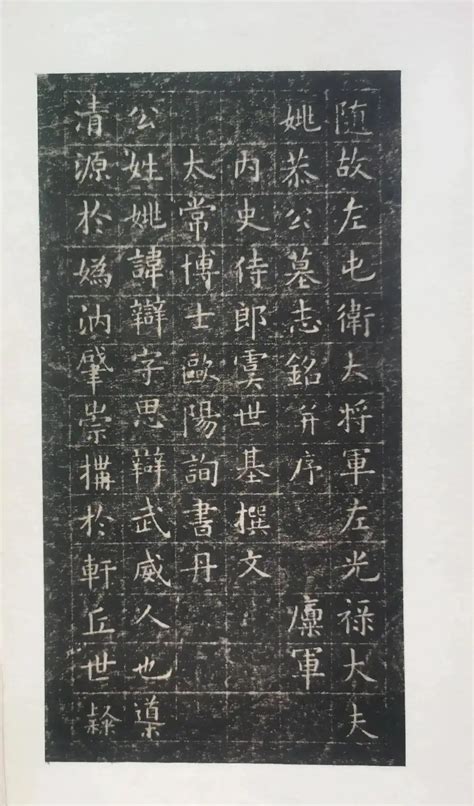 随故左屯衛大将軍左光禄大夫
姚恭公墓志銘并序 廩軍
内史侍郎虞世基撰文
太常博士歐陽詢書丹
公姓姚諱辯字思辯武威人也導
清源於嬀汭肇崇搆於軒丘世